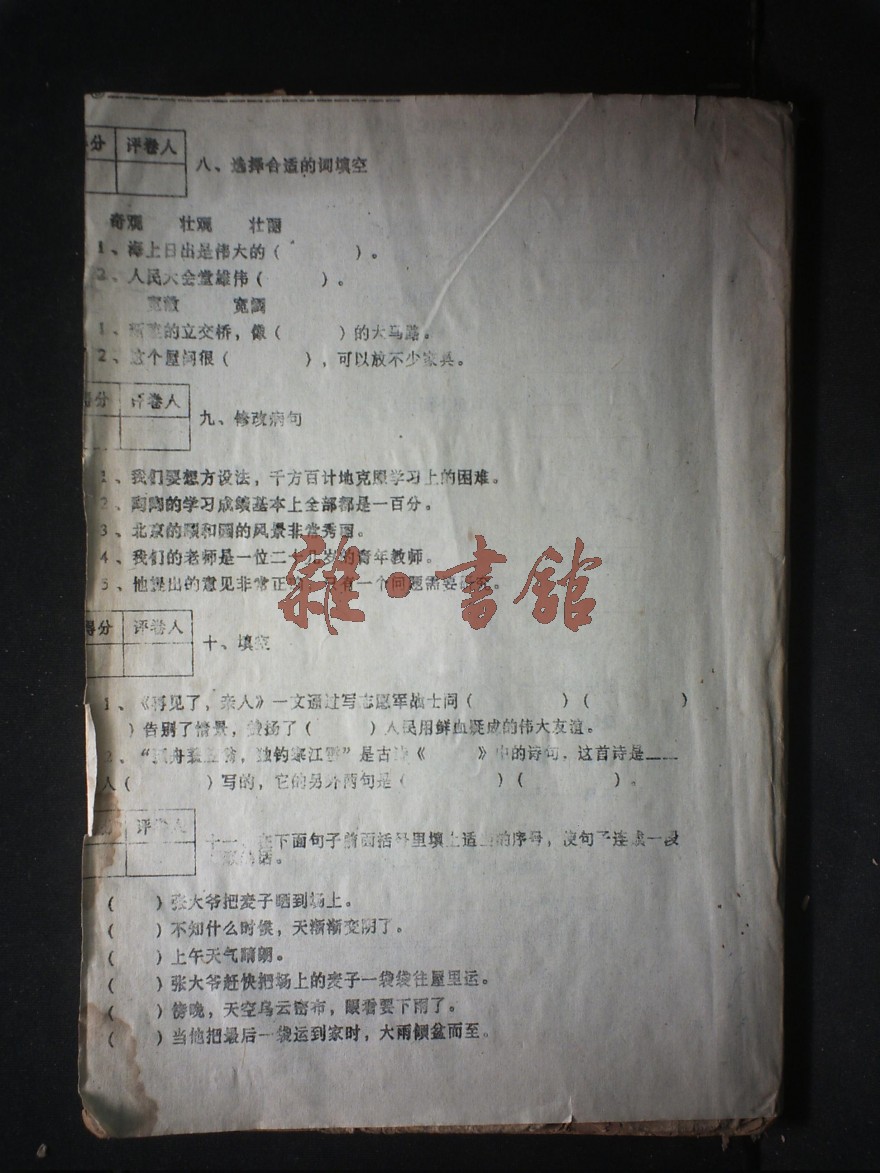 得分 评卷人
八、选择合适的词填空
奇观 壮观 壮丽
1、海上日出是伟大的（ ）。
2、人民大会堂雄伟（ ）。
宽敞 宽阔
1、的立交桥，像（ ）的大马路。
2、这个屋间很（ ），可以放不少家具。
得分 评卷人
九、修改病句
1、我们要想方设法，千方百计地克服学习上的困难。
2、陶陶的学习成绩基本上全部都是一百分。
3、北京的颐和园的风景非常秀丽。
4、我们的老师是一位二十几岁的青年教师。
5、他提出的意见非常正，有一个问题需要
雜·書館
得分 评卷人
十、填空
1、《再见了，亲人》一文通过写志愿军战士同（ ）（ ）
）告别了情景，扬了（ ）人民用鲜血凝成的伟大友谊。
2、“舟蓑笠翁，独钓寒江雪”是古诗《 》中的诗句，这首诗是
人（ ）写的，它的另外两句是（ ）（ ）。
评卷人
十一、在下面句子前面括号里填上适的序号，使句子连成一段
话。
（ ）张大爷把麦子晒到场上。
（ ）不知什么时候，天渐渐变阴了。
（ ）上午天气晴朗。
（ ）张大爷赶快把场上的麦子一袋袋往屋里运。
（ ）傍晚，天空乌云密布，眼看要下雨了。
（ ）当他把最后一袋运到家时，大雨倾盆而至。